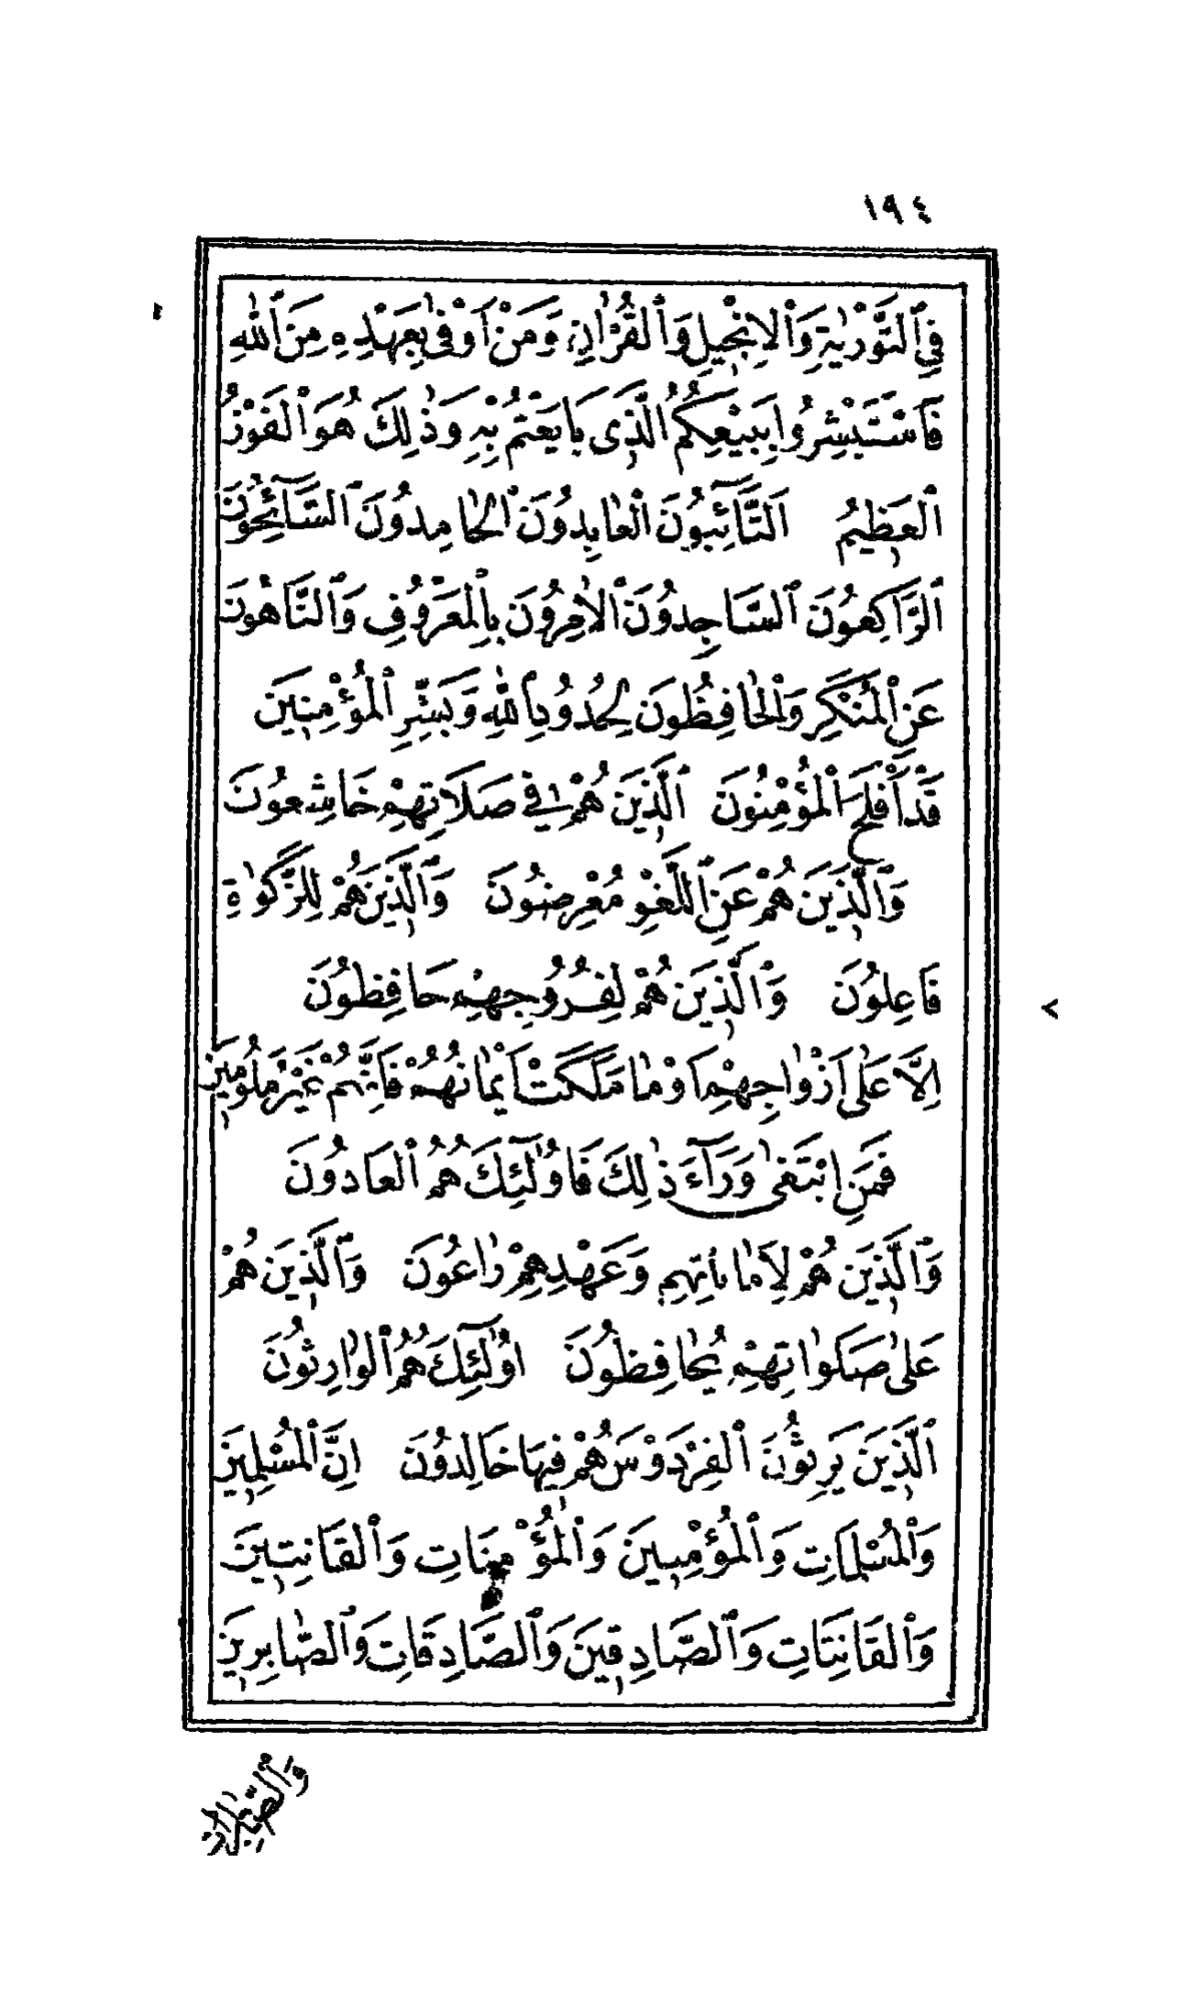 ١٩٤
فِي ٱلتَّوْرٰيةِ وَٱلْاِنْجٖيلِ وَٱلْقُرْاٰنِ وَمَنْ اَوْفٰى بِعَهْدِهٖ مِنَ ٱللّٰهِ
فَٱسْتَبْشِرُوا بِبَيْعِكُمُ ٱلَّذٖى بَايَعْتُمْ بِهٖ وَذٰلِكَ هُوَ ٱلْفَوْزُ
ٱلْعَظٖيمُ اَلتَّٓائِبُونَ ٱلْعٰابِدُونَ ٱلْحٰامِدُونَ ٱلسَّٓائِحُونَ
ٱلرَّاكِعُونَ ٱلسَّاجِدُونَ ٱلْاٰمِرُونَ بِٱلْمَعْرُوفِ وَٱلنَّاهُونَ
عَنِ ٱلْمُنْكَرِ وَٱلْحٰافِظُونَ لِحُدُودِ ٱللّٰهِ وَبَشِّرِ ٱلْمُؤْمِنٖينَ
قَدْ اَفْلَحَ ٱلْمُؤْمِنُونَ ٱلَّذٖينَ هُمْ فٖي صَلَاتِهِمْ خَاشِعُونَ
وَٱلَّذٖينَ هُمْ عَنِ ٱللَّغْوِ مُعْرِضُونَ وَٱلَّذٖينَ هُمْ لِلزَّكٰوةِ
فَاعِلُونَ وَٱلَّذٖينَ هُمْ لِفُرُوجِهِمْ حَافِظُونَ
اِلَّا عَلٰى اَزْوٰاجِهِمْ اَوْ مٰا مَلَكَتْ اَيْمٰانُهُمْ فَاِنَّهُمْ غَيْرُ مَلُومٖينَ
فَمَنِ ابْتَغٰى وَرَٓاءَ ذٰلِكَ فَاُولٰٓئِكَ هُمُ ٱلْعَادُونَ
وَٱلَّذٖينَ هُمْ لِاَمٰانٰاتِهِمْ وَعَهْدِهِمْ رٰاعُونَ وَٱلَّذٖينَ هُمْ
عَلٰى صَلَوٰاتِهِمْ يُحٰافِظُونَ اُولٰٓئِكَ هُمُ ٱلْوٰارِثُونَ
ٱلَّذٖينَ يَرِثُونَ ٱلْفِرْدَوْسَ هُمْ فٖيهَا خَالِدُونَ اِنَّ ٱلْمُسْلِمٖينَ
وَٱلْمُسْلِمَاتِ وَٱلْمُؤْمِنٖينَ وَٱلْمُؤْمِنَاتِ وَٱلْقَانِتٖينَ
وَٱلْقَانِتَاتِ وَٱلصَّادِقٖينَ وَٱلصَّادِقَاتِ وَٱلصَّابِرٖينَ